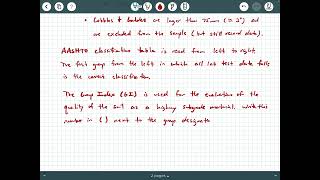 • Cobbles & boulders are larger than 75mm (≈ 3") and
are excluded from the sample (but still record data).
AASHTO classification table is read from left to right.
The first group from the left in which all lab test data falls is
the correct classification.
The Group Index (GI) is used for the evaluation of the
quality of the soil as a highway subgrade material. Write this
number in ( ) next to the group designate
2 pages